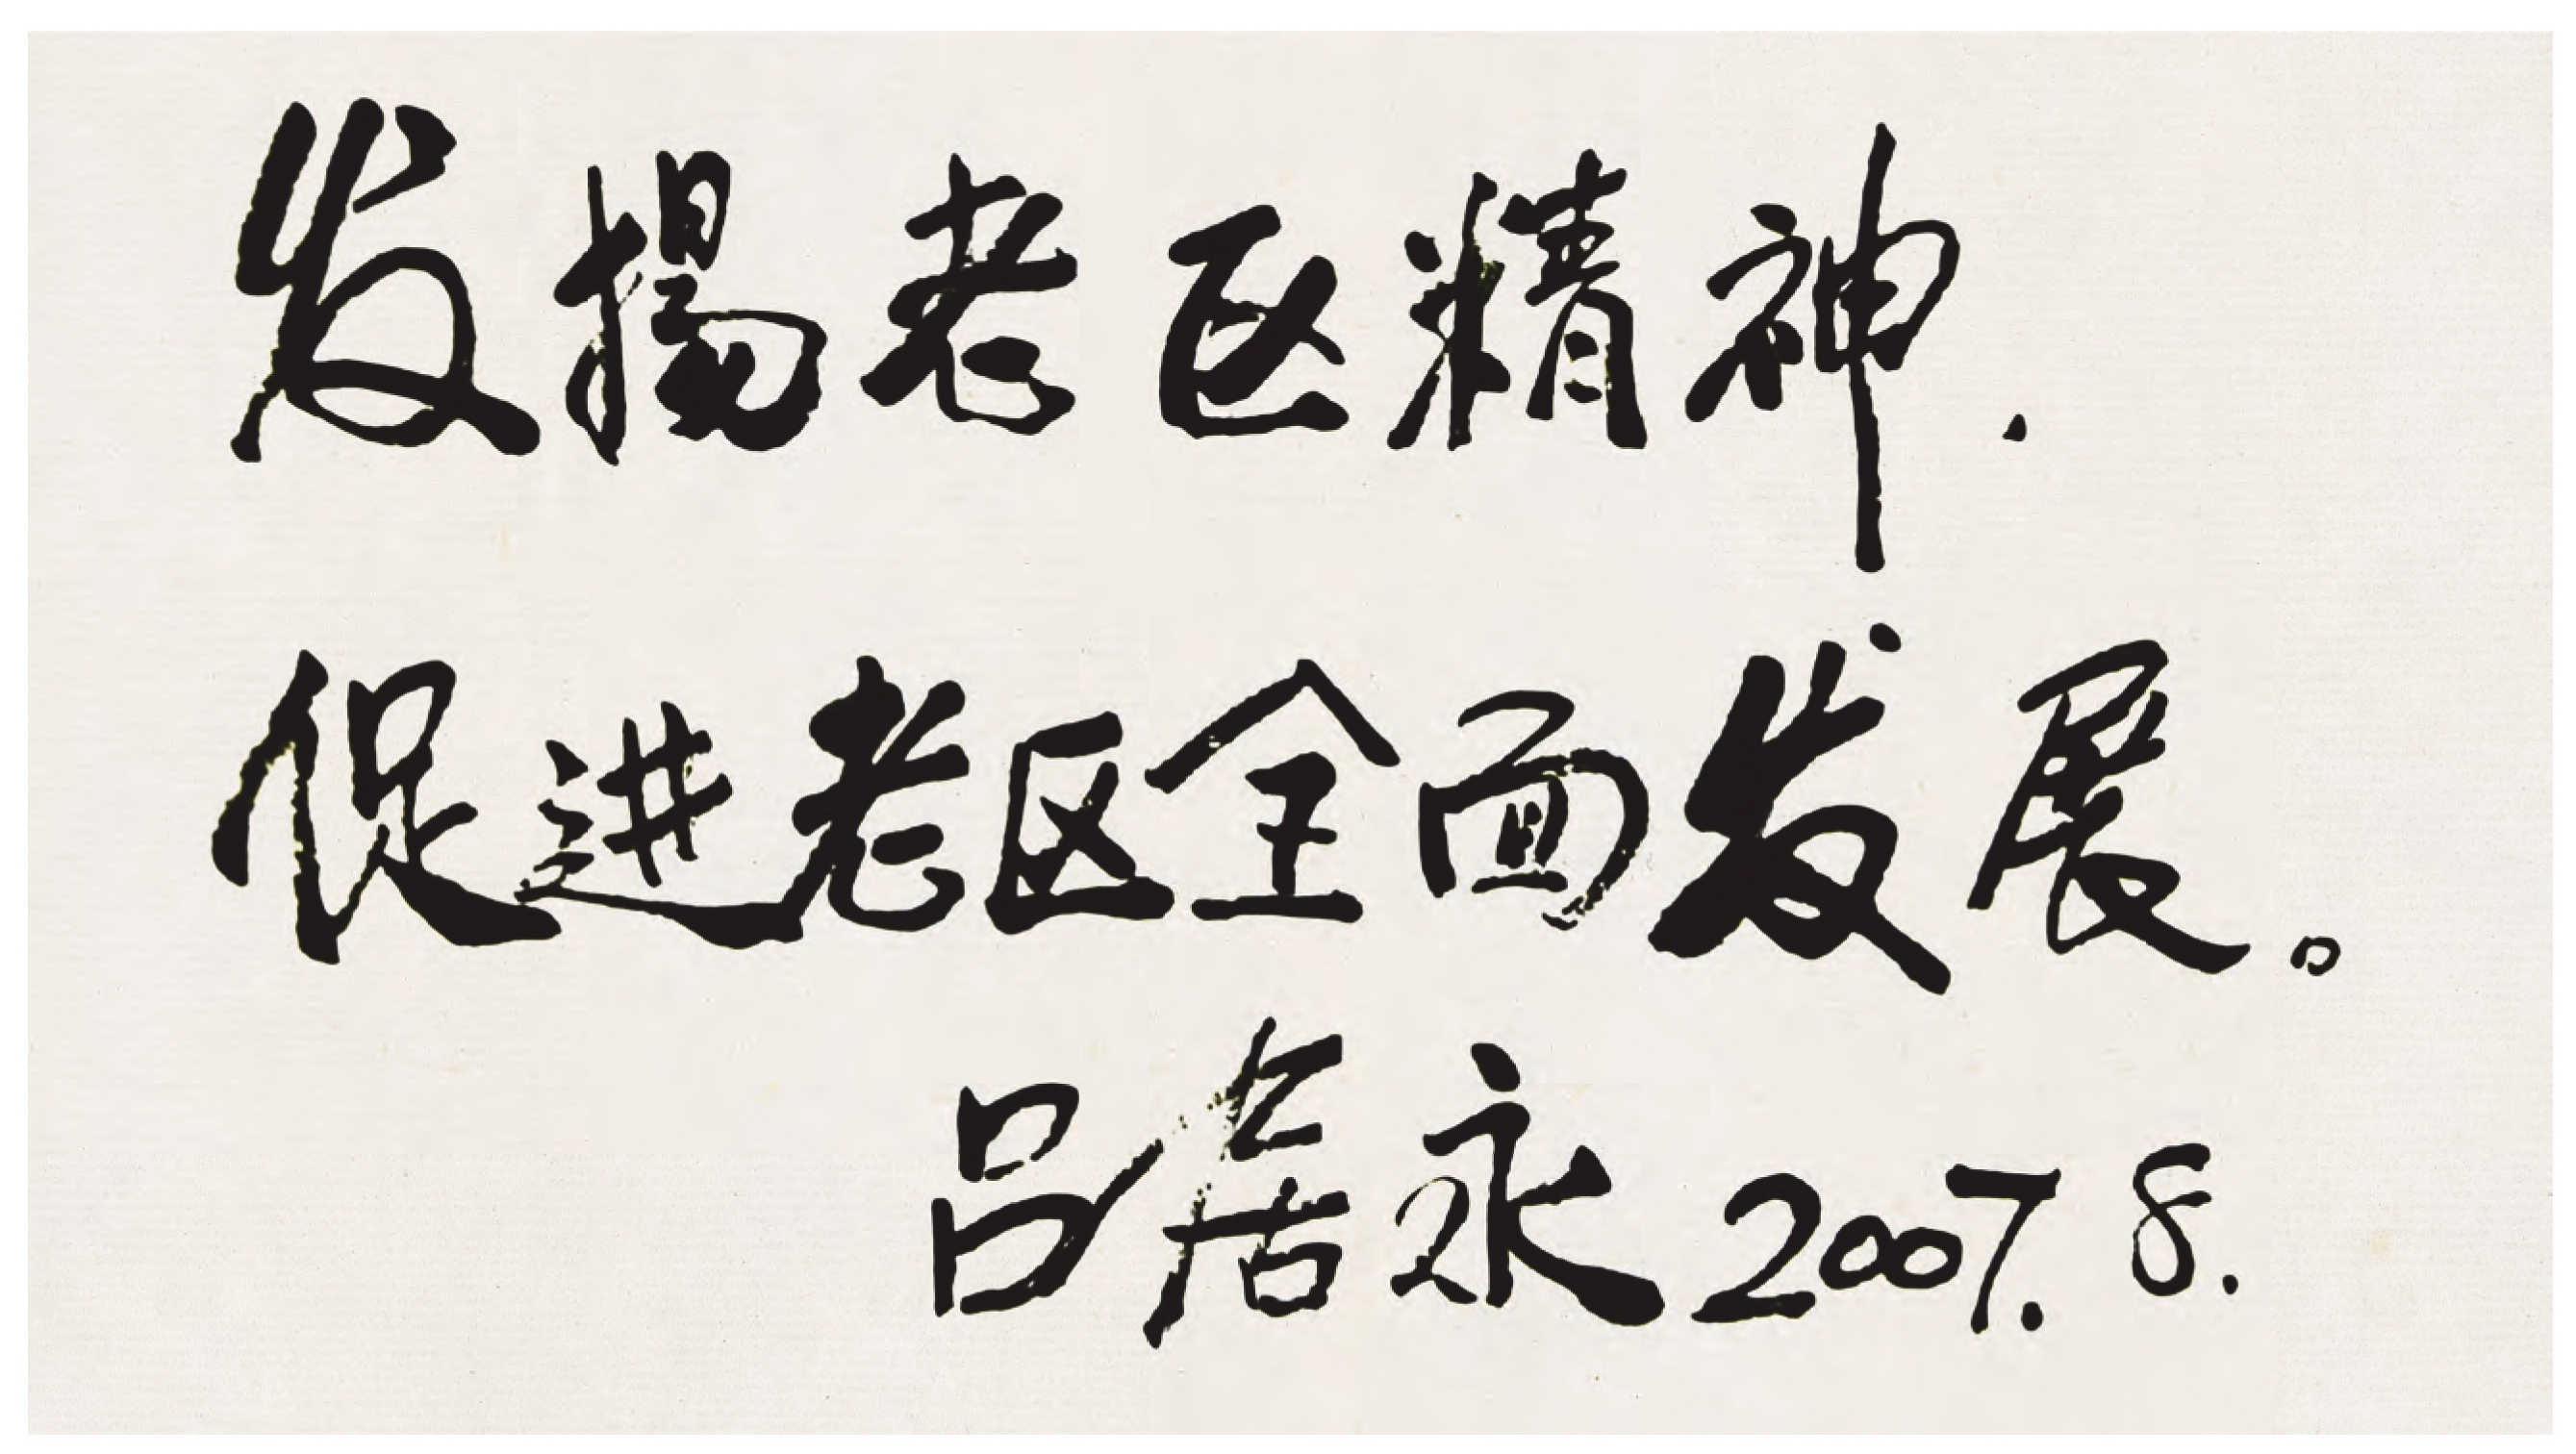 发揚老区精神.
促进老区全面发展。
吕居永 2007. 8.